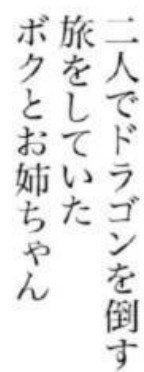 二人でドラゴンを倒す
旅をしていた
ボクとお姉ちゃん